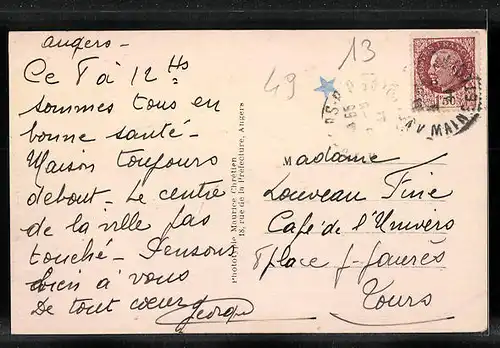 Angers -
Ce 7 à 12 Hs
sommes tous en
bonne santé -
Maison toujours
debout - Le centre
de la ville pas
touché - Pensons
bien à vous
De tout coeur
George
Photos de Maurice Chrétien
18, rue de la Préfecture, Angers
49
13
1F50
Madame
Louveau Fine
Café de l'Univers
Place J-Jaurès
Tours